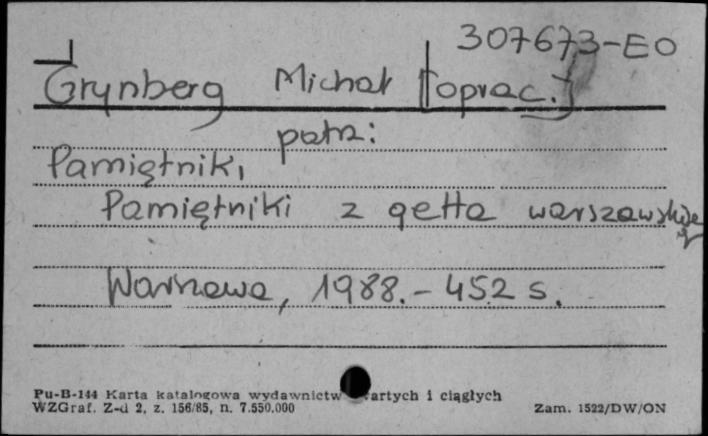 307673-EO
Grynberg Michał [oprac.]
patrz:
Pamiętniki
Pamiętniki z getta warszawskiego
Warszawa, 1988. - 452 s.
Pu-B-144 Karta katalogowa wydawnictw zwartych i ciągłych
WZGraf. Z-d 2, z. 156/85, n. 7.550.000
Zam. 1522/DW/ON